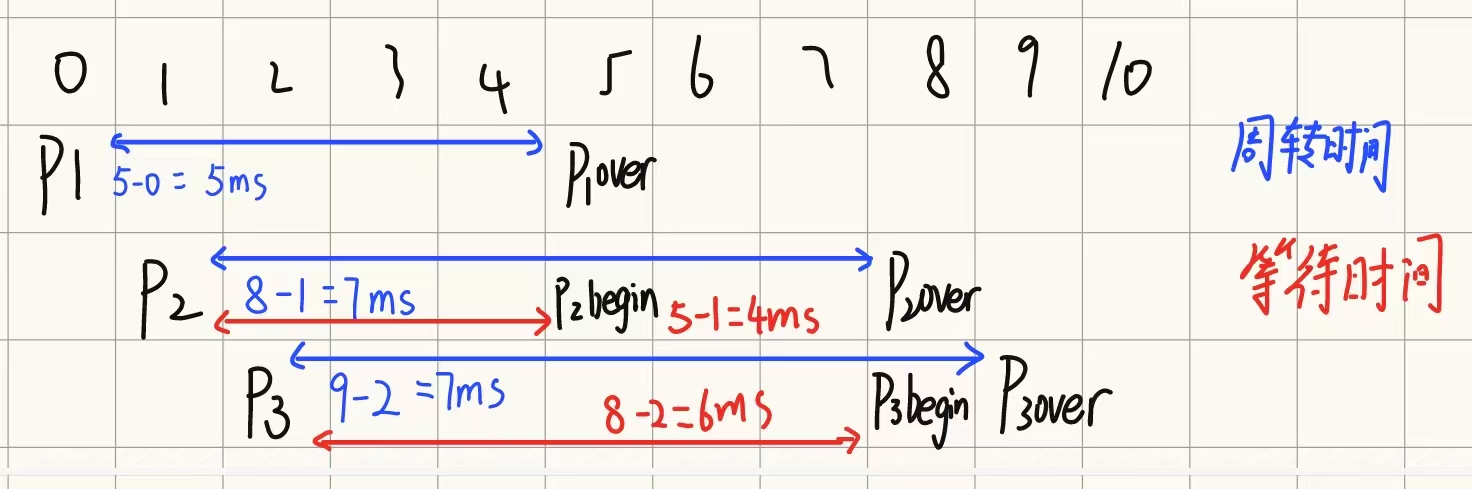 0 1 2 3 4 5 6 7 8 9 10
P1 5-0 = 5ms P1over 周转时间
P2 8-1=7ms P2begin 5-1=4ms P2over 等待时间
P3 9-2=7ms 8-2=6ms P3begin P3over